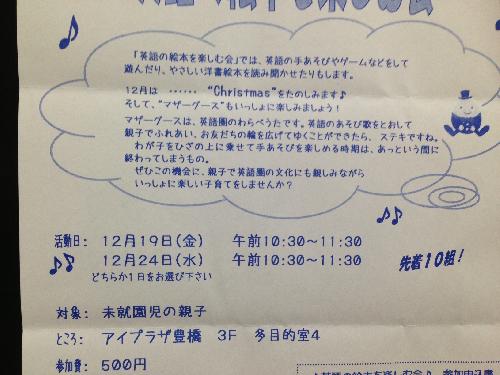 「英語の絵本を楽しむ会」では、英語の手あそびやゲームなどをして
遊んだり、やさしい洋書絵本を読み聞かせたりもします。
12月は ・・・・・・ “Christmas”をたのしみます♪
そして、“マザーグース”もいっしょに楽しみましょう!
マザーグースは、英語圏のわらべうたです。英語のあそび歌をとおして
親子でふれあい、お友だちの輪を広げてゆくことができたら、ステキですね。
わが子をひざの上に乗せて手あそびを楽しめる時期は、あっという間に
終わってしまうもの。
ぜひこの機会に、親子で英語圏の文化にも親しみながら
いっしょに楽しい子育てをしませんか?
活動日: 12月19日(金) 午前10:30~11:30
12月24日(水) 午前10:30~11:30
どちらか1日をお選び下さい
先着10組!
対象: 未就園児の親子
ところ: アイプラザ豊橋 3F 多目的室4
参加費: 500円